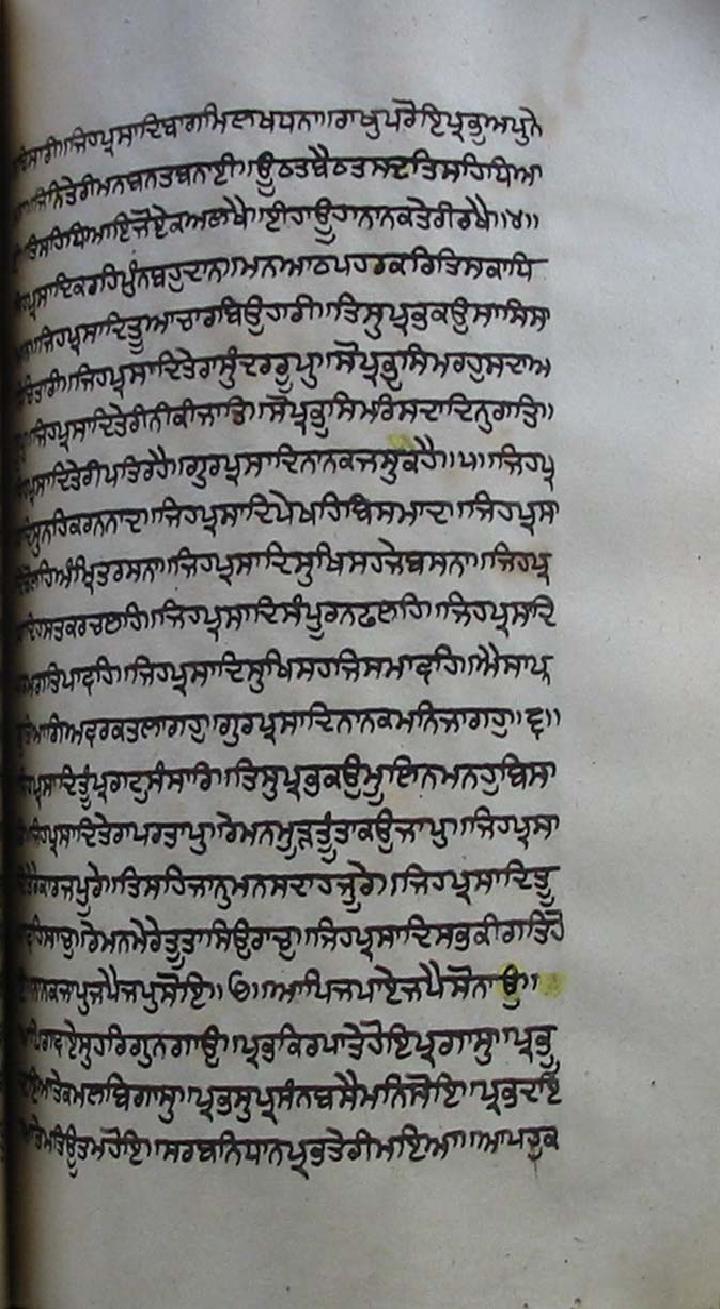 ਸਾਰੀ॥ਜਿਹਪ੍ਰਸਾਦਿਬਾਗਮਿਲਖਧਨਾ॥ਰਾਖੁਪਰੋਇਪ੍ਰਭੁਅਪੁਨੇ
ਜਿਨਿਤੇਰੀਮਨਬਨਤਬਨਾਈ॥ਊਠਤਬੈਠਤਸਦਤਿਸਹਿਧਿਆ
ਤਿਸਹਿਧਿਆਇਜੋਏਕਅਲਖੈ॥ਈਹਾਊਹਾਨਾਨਕਤੇਰੀਰਖੈ॥੪॥
ਪ੍ਰਸਾਦਿਕਰਹਿਪੁੰਨਬਹੁਦਾਨ॥ਮਨਆਠਪਹਰਕਰਿਤਿਸਕਾਧਿ
ਜਿਹਪ੍ਰਸਾਦਿਤੂਆਚਾਰਬਿਉਹਾਰੀ॥ਤਿਸੁਪ੍ਰਭੁਕਉਸਾਸਿਸਾ
ਚਿਤਾਰੀ॥ਜਿਹਪ੍ਰਸਾਦਿਤੇਰਾਸੁੰਦਰਰੂਪੁ॥ਸੋਪ੍ਰਭੁਸਿਮਰਹੁਸਦਾਅ
ਜਿਹਪ੍ਰਸਾਦਿਤੇਰੀਨੀਕੀਜਾਤਿ॥ਸੋਪ੍ਰਭੁਸਿਮਰਿਸਦਾਦਿਨੁਰਾਤਿ॥
ਪ੍ਰਸਾਦਿਤੇਰੀਪਤਿਰਹੈ॥ਗੁਰਪ੍ਰਸਾਦਿਨਾਨਕਜਸੁਕਹੈ॥੫॥ਜਿਹਪ੍ਰ
ਸੁਨਹਿਕਰਨਨਾਦ॥ਜਿਹਪ੍ਰਸਾਦਿਪੇਖਹਿਬਿਸਮਾਦ॥ਜਿਹਪ੍ਰਸਾ
ਬੋਲਹਿਅੰਮ੍ਰਿਤਰਸਨਾ॥ਜਿਹਪ੍ਰਸਾਦਿਸੁਖਿਸਹਜੇਬਸਨਾ॥ਜਿਹਪ੍ਰ
ਹਸਤਕਰਚਲਹਿ॥ਜਿਹਪ੍ਰਸਾਦਿਸੰਪੂਰਨਫਲਹਿ॥ਜਿਹਪ੍ਰਸਾਦਿ
ਪਰਮਗਤਿਪਾਵਹਿ॥ਜਿਹਪ੍ਰਸਾਦਿਸੁਖਿਸਹਜਿਸਮਾਵਹਿ॥ਐਸਾਪ੍ਰ
ਤਿਆਗਿਅਵਰਕਤਲਾਗਹੁ॥ਗੁਰਪ੍ਰਸਾਦਿਨਾਨਕਮਨਿਜਾਗਹੁ॥੬॥
ਪ੍ਰਸਾਦਿਤੂੰਪ੍ਰਗਟੁਸੰਸਾਰਿ॥ਤਿਸੁਪ੍ਰਭੁਕਉਮੂਲਿਨਮਨਹੁਬਿਸਾ
ਜਿਹਪ੍ਰਸਾਦਿਤੇਰਾਪਰਤਾਪੁ॥ਰੇਮਨਮੂੜਤੂੰਤਾਕਉਜਾਪੁ॥ਜਿਹਪ੍ਰਸਾ
ਤੇਰੇਕਾਰਜਪੂਰੇ॥ਤਿਸਹਿਜਾਨੁਮਨਸਦਾਹਜੂਰੇ॥ਜਿਹਪ੍ਰਸਾਦਿਤੂ
ਪਾਵਹਿਸਾਚੁ॥ਰੇਮਨਮੇਰੇਤੂਤਾਸਿਉਰਾਚੁ॥ਜਿਹਪ੍ਰਸਾਦਿਸਭਕੀਗਤਿਹੋ
ਨਾਨਕਜਾਪੁਜਪੈਜਪੁਸੋਇ॥੭॥ਆਪਿਜਪਾਏਜਪੈਸੋਨਾਉ॥
ਆਪਿਗਾਵਏਸੁਹਰਿਗੁਨਗਾਉ॥ਪ੍ਰਭਕਿਰਪਾਤੇਹੋਇਪ੍ਰਗਾਸੁ॥ਪ੍ਰਭੂ
ਦਇਆਤੇਕਮਲਬਿਗਾਸੁ॥ਪ੍ਰਭਸੁਪ੍ਰਸੰਨਬਸੈਮਨਿਸੋਇ॥ਪ੍ਰਭਦਇ
ਤੇਮਤਿਊਤਮਹੋਇ॥ਸਰਬਨਿਧਾਨਪ੍ਰਭਤੇਰੀਮਇਆ॥ਆਪਹੁਕ